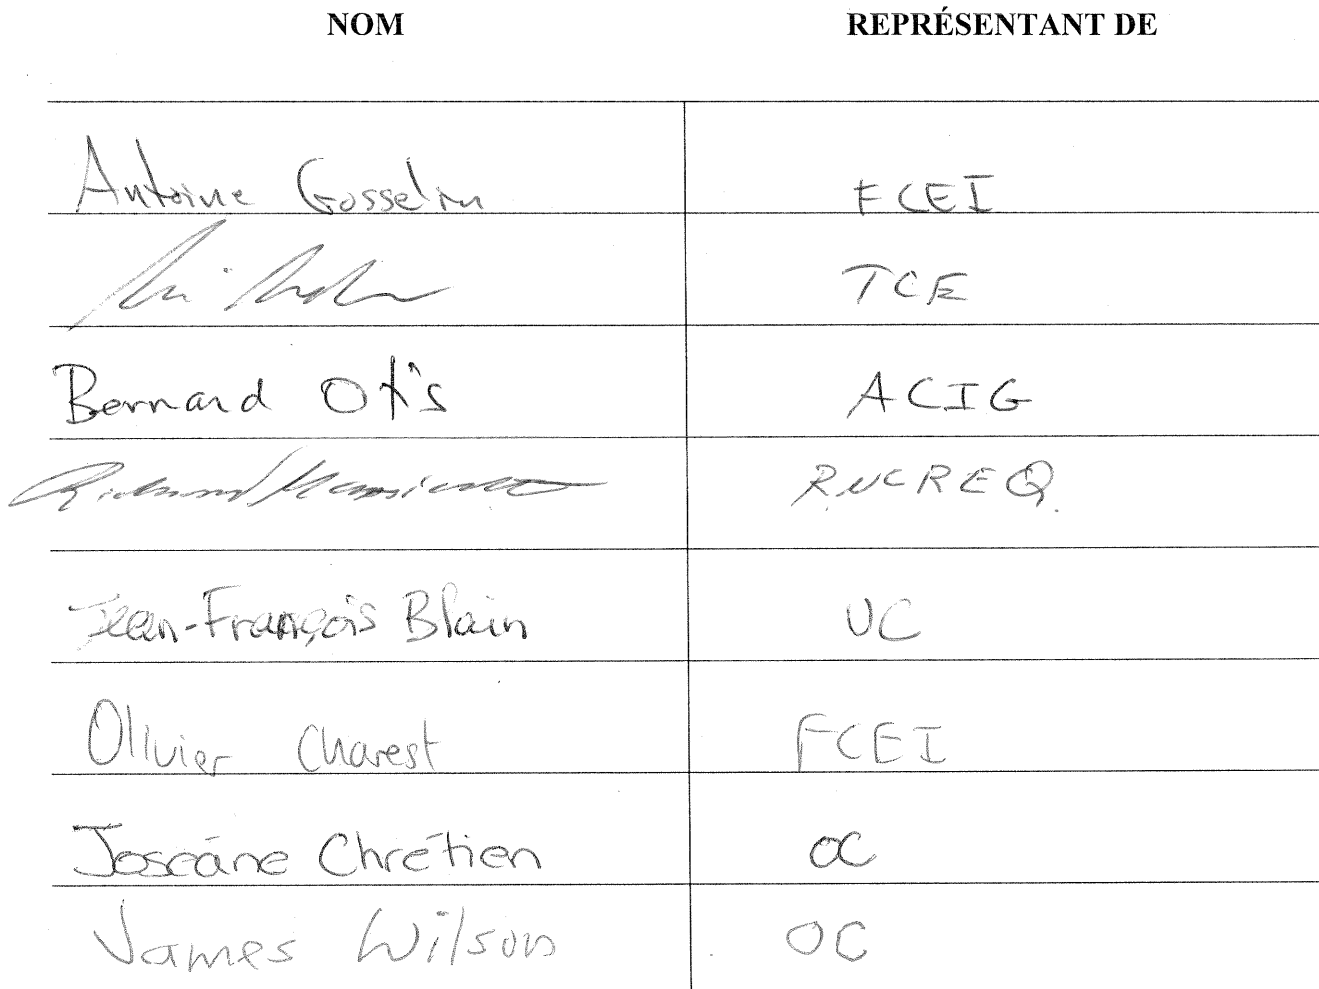 NOM REPRÉSENTANT DE
Antoine Gosselin FCEI
TCE
Bernard Otis ACIG
RNCREQ
Jean-François Blain UC
Olivier Charest FCEI
Joséane Chrétien OC
James Wilson OC